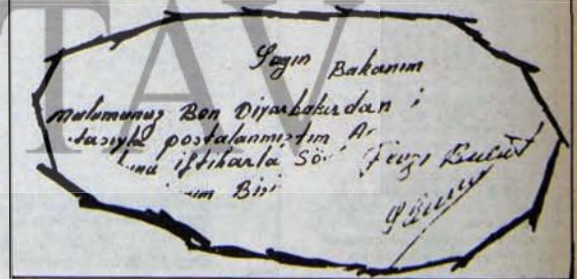 TAV
Sayın Bakanım
malumunuz Ben Diyarbakırdan i
tasıyla postalanmıştım A
una iftiharla Sö
ım Bi
Fevzi Bulut